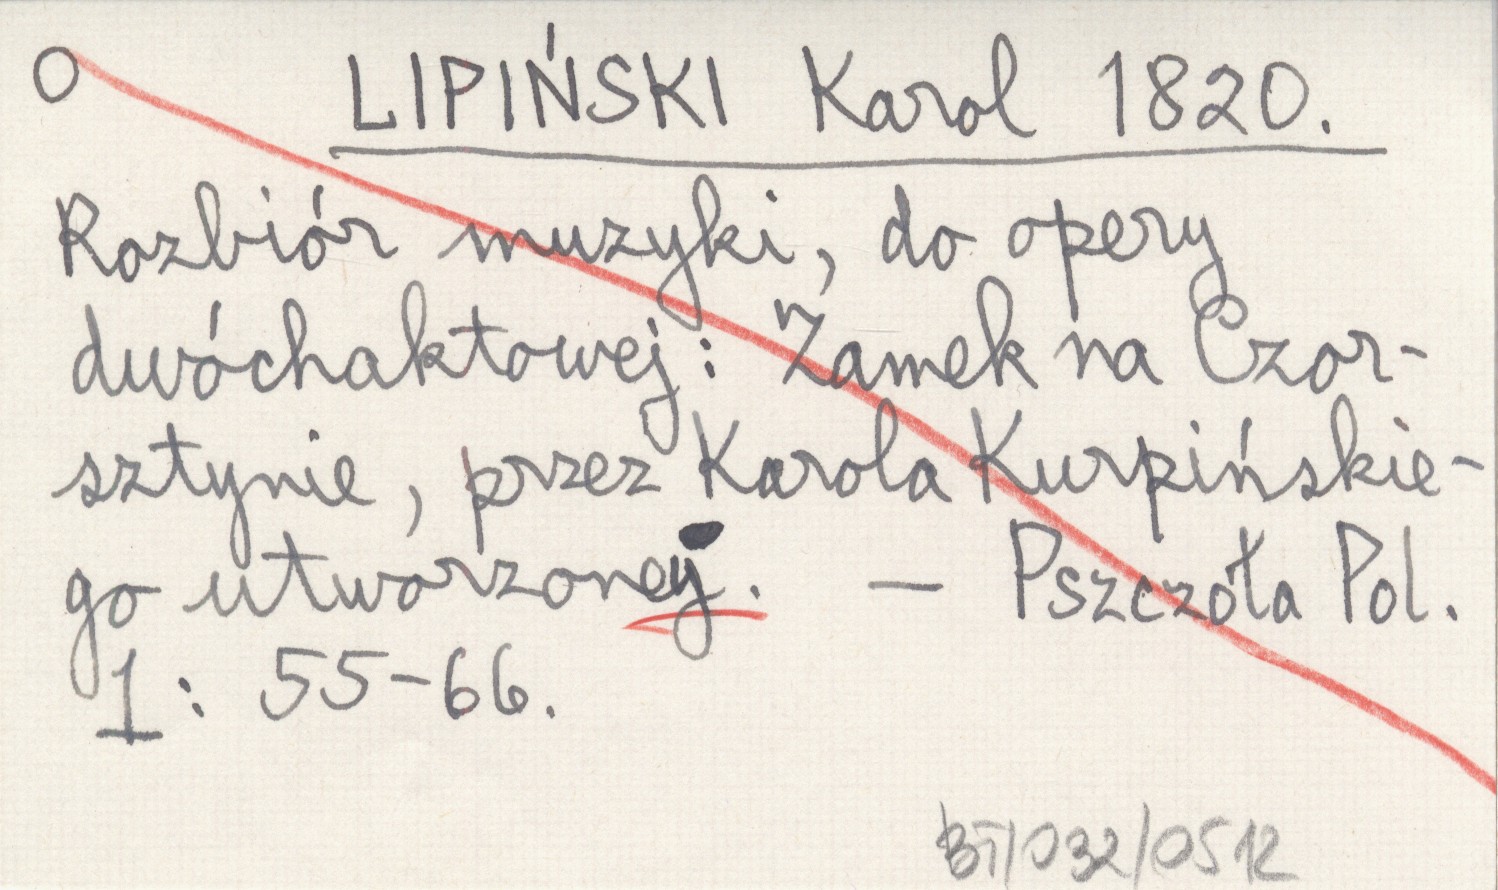 O LIPIŃSKI Karol 1820.
Rozbiór muzyki, do opery
dwóchaktowej: Zamek na Czor-
sztynie, przez Karola Kurpińskie-
go utworzoney. — Pszczóła Pol.
1: 55-66.
BT/032/0512